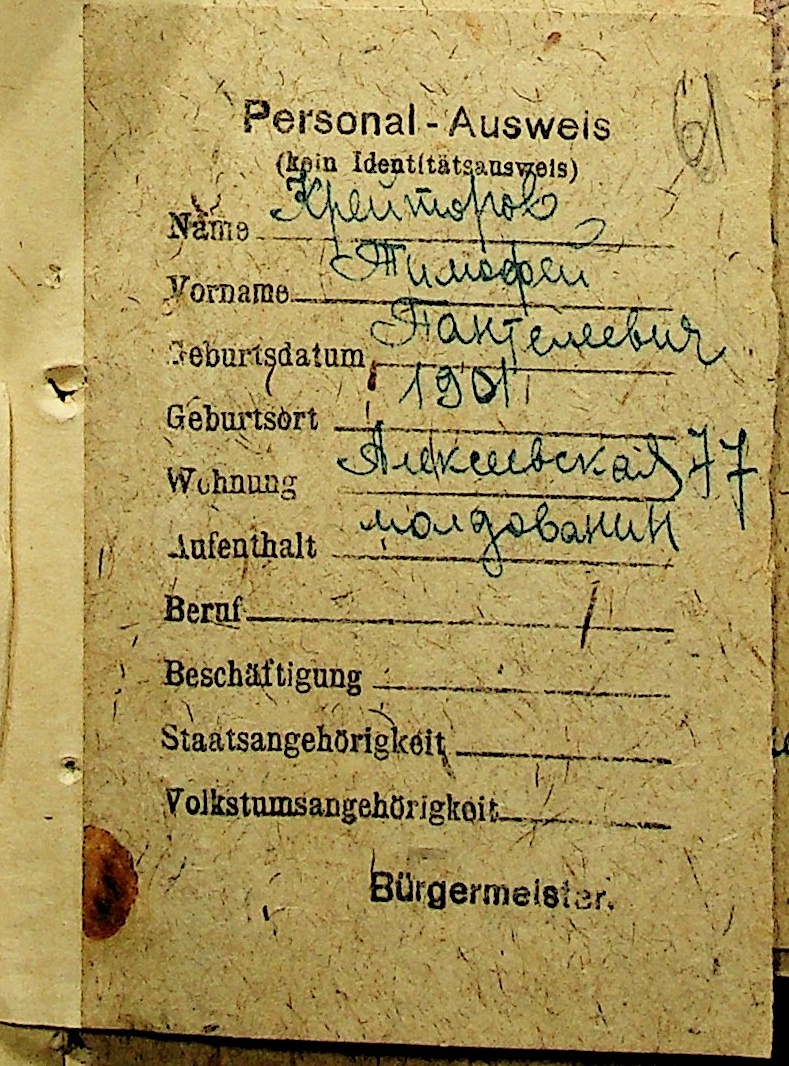 61
Personal-Ausweis
(kein Identitätsausweis)
Name Крейторов
Vorname Тимофей
Geburtsdatum Пантелеевич
Geburtsort 1901
Wohnung Алексеевская 77
Aufenthalt молдованин
Beruf
Beschäftigung
Staatsangehörigkeit
Volkstumsangehörigkeit
Bürgermeister.